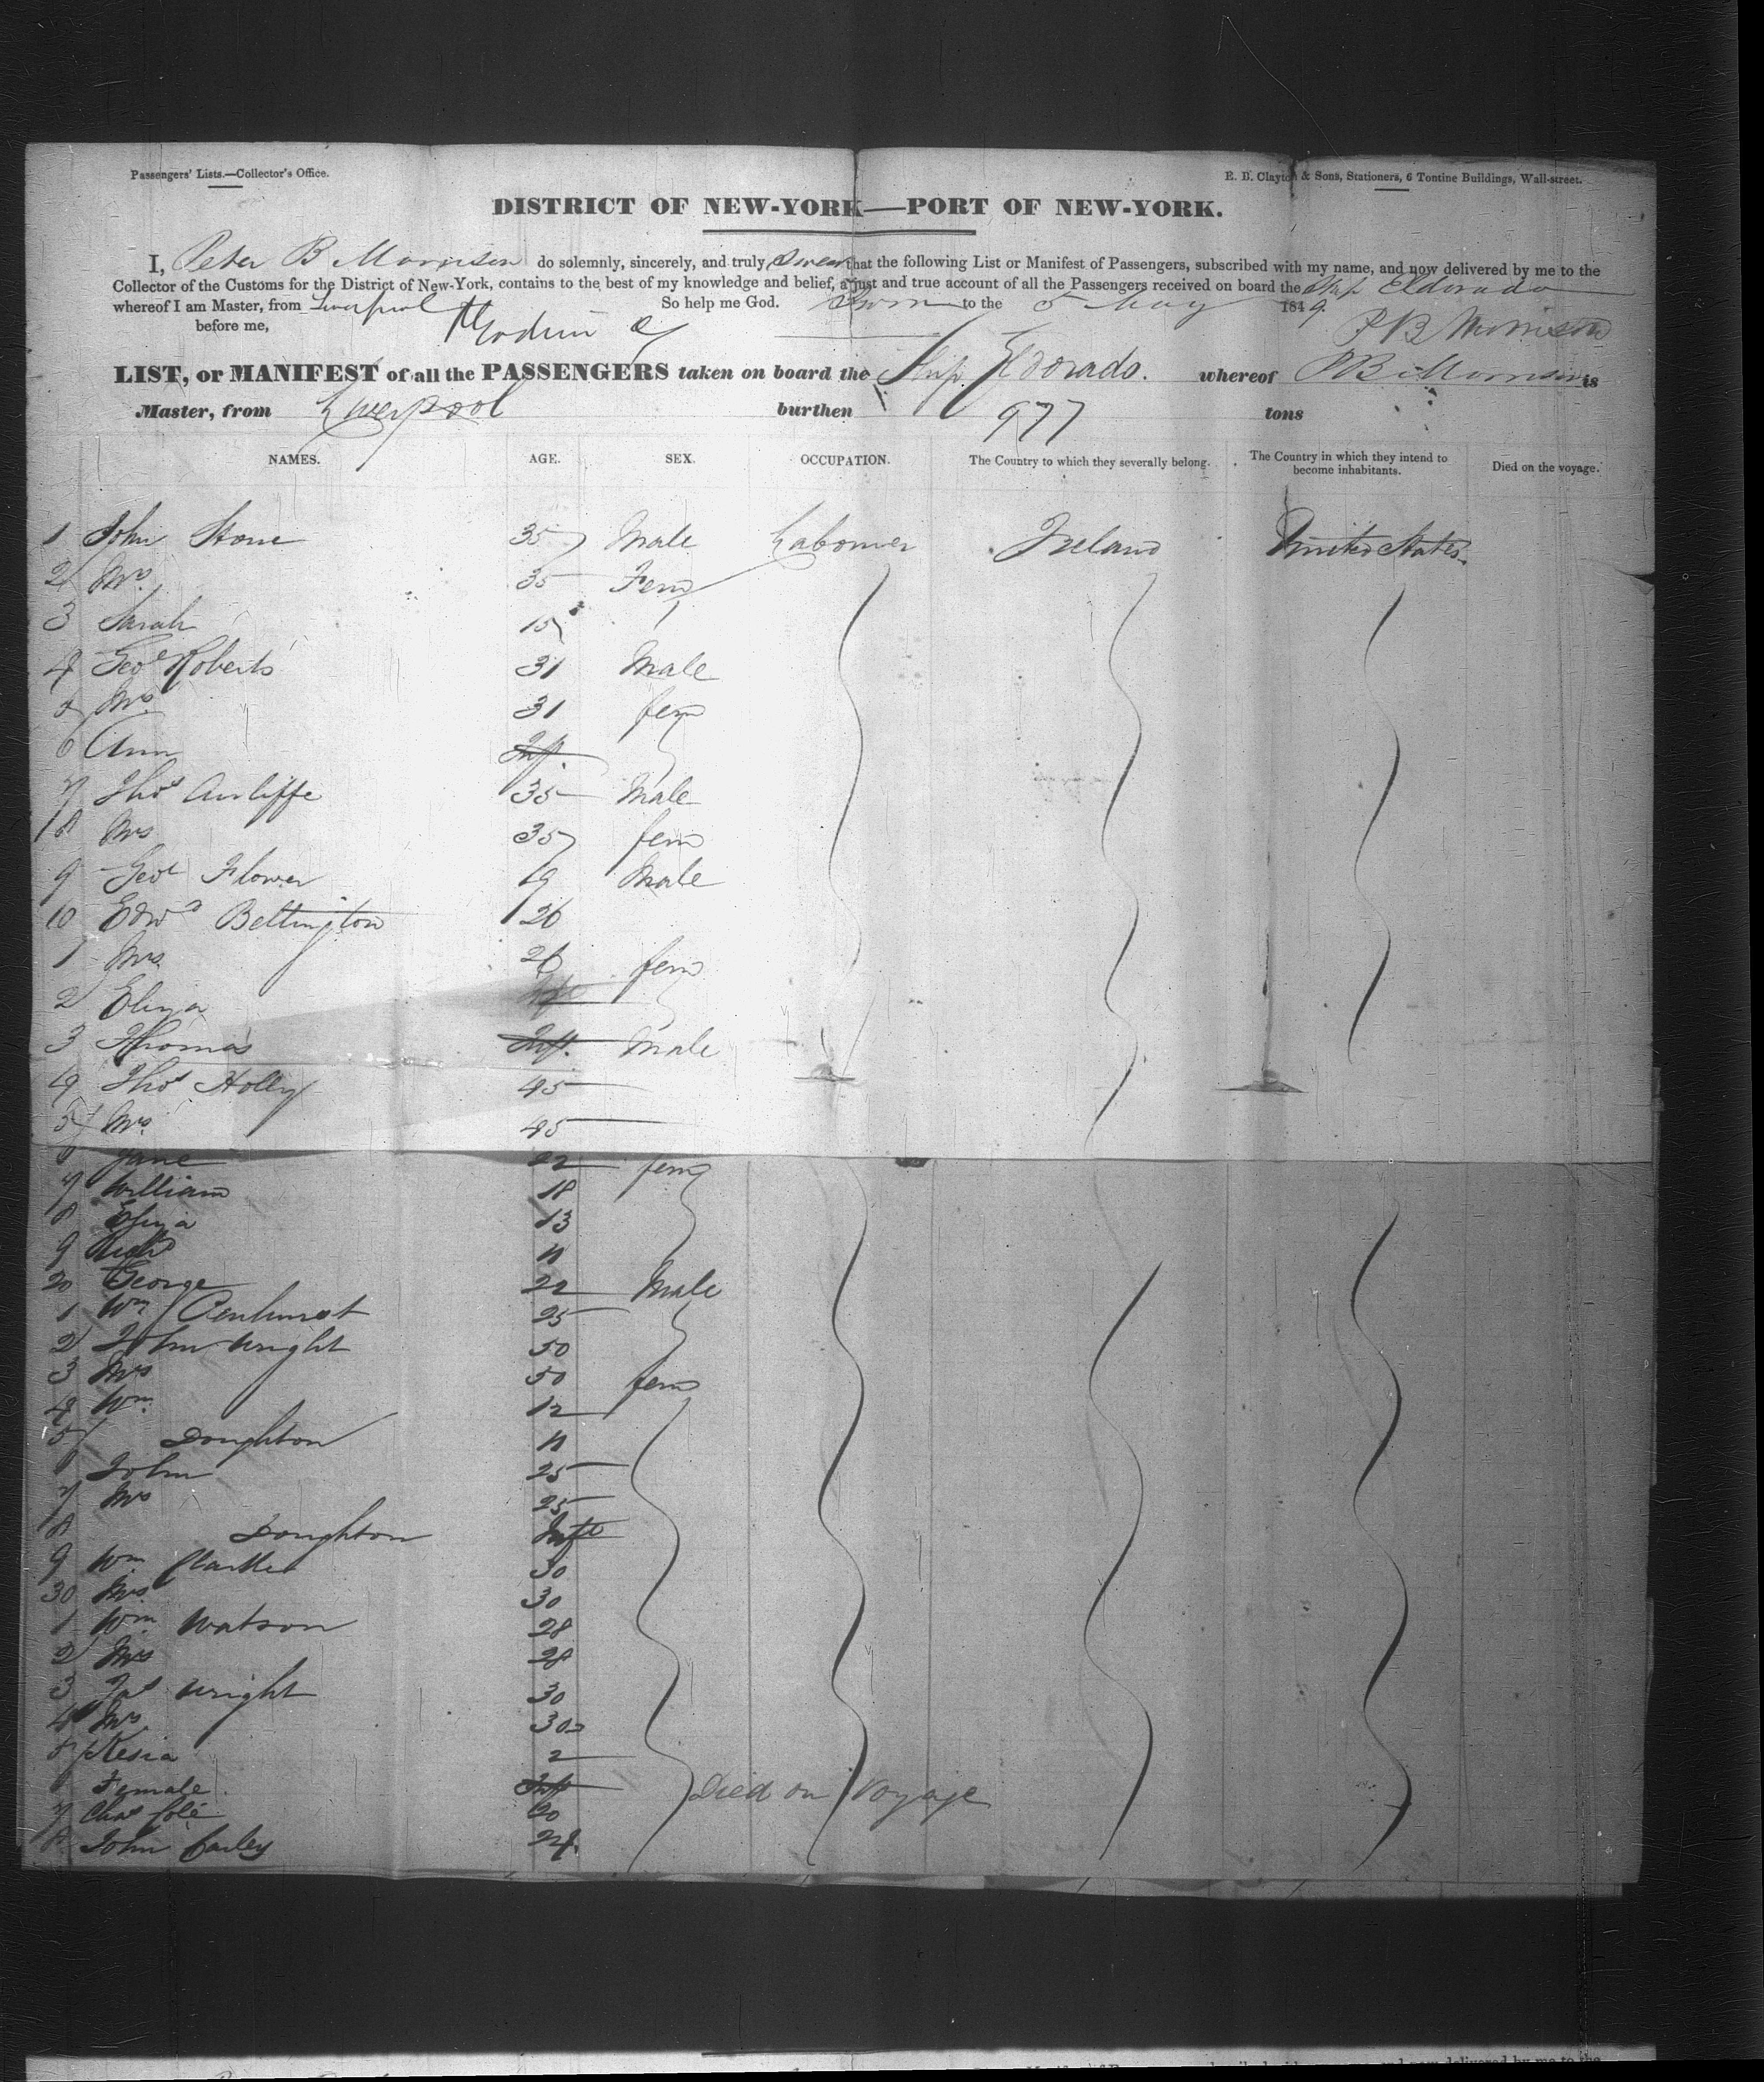 Passengers' Lists.—Collector's Office.
E. D. Clayton & Sons, Stationers, 6 Tontine Buildings, Wall-street.
DISTRICT OF NEW-YORK—PORT OF NEW-YORK.
I, Peter B Morrison do solemnly, sincerely, and truly swear that the following List or Manifest of Passengers, subscribed with my name, and now delivered by me to the
Collector of the Customs for the District of New-York, contains to the best of my knowledge and belief, a just and true account of all the Passengers received on board the Ship Eldorado
whereof I am Master, from Liverpool So help me God. Sworn to the 5 May 1849.
before me, P B Morrison
LIST, or MANIFEST of all the PASSENGERS taken on board the Ship Eldorado. whereof P B Morrison is
Master, from Liverpool burthen 977 tons
NAMES. AGE. SEX. OCCUPATION. The Country to which they severally belong. The Country in which they intend to become inhabitants. Died on the voyage.
1 John Stone 35 Male Labourer Ireland United States
2 Mrs 35 Fem
3 Sarah 15
4 Geoe Roberts 31 Male
5 Mrs 31 fem
6 Ann Inf.
7 Thos 35 Male
8 Mrs 35 fem
9 Geoe Flower 19 Male
10 Edwd Bettington 26
1 Mrs 26 fem
2 Eliza Inft
3 Thomas Inft. Male
4 Thos Holly 45
5 Mrs 45
6 Jane 22 fem
7 William 18
8 Eliza 13
9 11
20 George 22 Male
1 Wm Penhurst 25
2 John Wright 50
3 Mrs 50 fem
4 Wm 12
5 Doughton 11
6 John 25
7 Mrs 25
8 Doughton Inft
9 Wm Clarke 30
30 Mrs 30
1 Wm Watson 28
2 Mrs 28
3 Jas Wright 30
4 Mrs 30
5 Kesia 2
6 Female Inf Died on Voyage
7 Chas Cole 20
8 John Carley 24